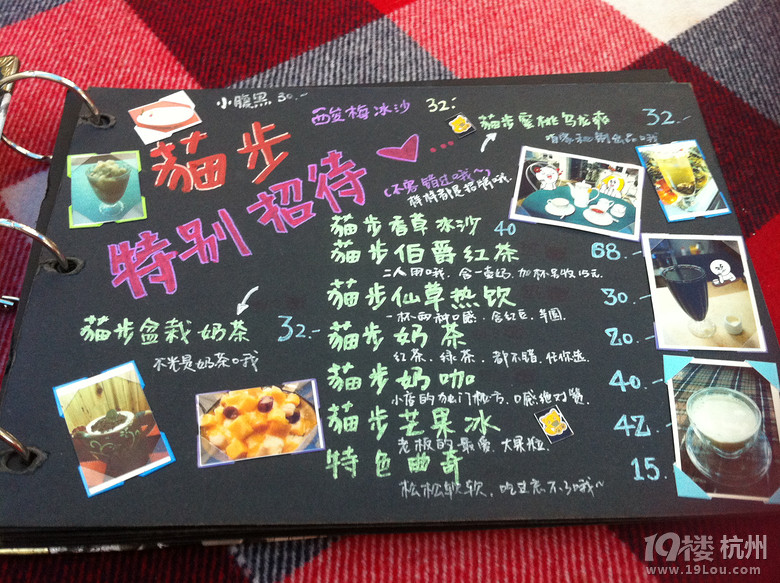 小腹黑 30.-
酸梅冰沙 32.-
貓步蜜桃乌龙爽 32.-
貓步
特别招待
(不要错过哦~)
样样都是招牌哦.
貓步香草冰沙 40
貓步伯爵红茶 68.-
二人用哦, 含一壶奶, 加杯另收15元.
貓步仙草热饮 30.-
一杯两种口感, 含红豆, 芋圆.
貓步盆栽奶茶 32.-
不光是奶茶口哦
貓步奶茶 20.-
红茶, 绿茶, 都不错, 任你选.
貓步奶咖 40.-
小店的独门秘方, 口感绝对赞.
貓步芒果冰 42.-
老板的最爱, 大果粒.
特色曲奇 15.
松松软软, 吃过忘不了哦~
19楼 杭州
www.19Lou.com